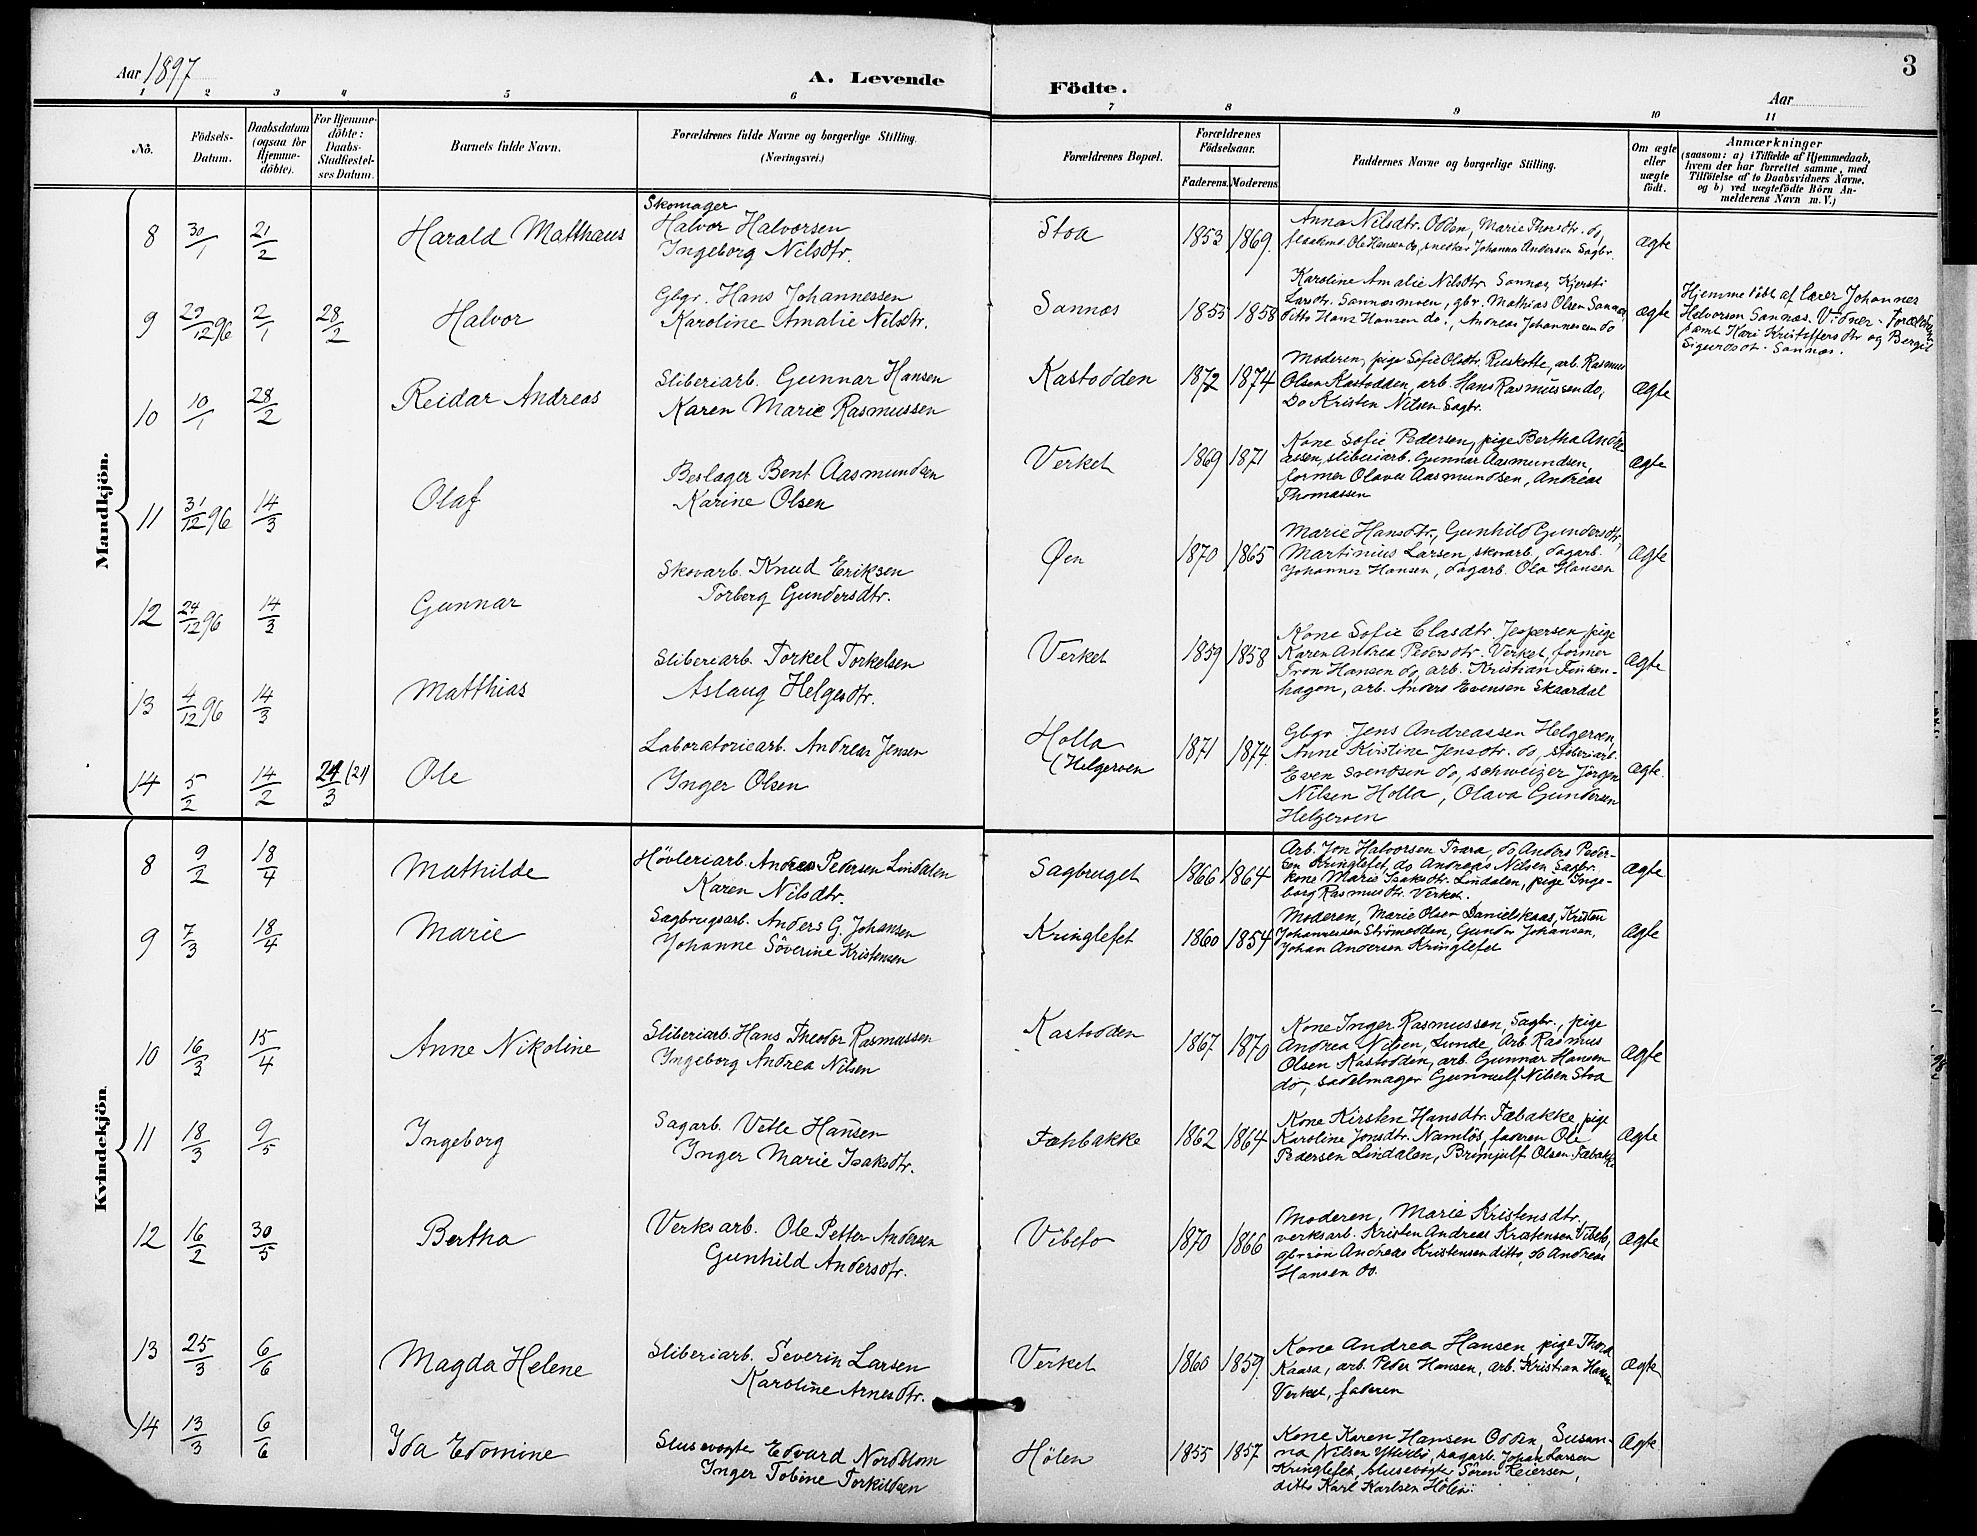 Aar 1897
A. Levende
Födte.
3
Aar
1 2 3 4 5 6 7 8 9 10 11
No.
Födsels-
Datum.
Daabsdatum
(ogsaa for
Hjemme-
döbte).
For Hjemme-
döbte:
Daabs-
Stadfæstel-
ses Datum.
Barnets fulde Navn.
Forældrenes fulde Navne og borgerlige Stilling.
(Næringsvei.)
Forældrenes Bopæl.
Forældrenes
Födselsaar.
Faderens. Moderens.
Faddernes Navne og borgerlige Stilling.
Om ægte
eller
uægte
födt.
Anmærkninger
(saasom: a) i Tilfælde af Hjemmedaab,
hvem der har forrettet samme, med
Tilföielse af to Daabsvidners Navne,
og b) ved uægtefödte Börn An-
melderens Navn m. V.)
Mandkjön.
8 30/1 21/2 Harald Matthæus
Skomager
Halvor Halvorsen
Ingeborg Nilsdtr.
Stoa 1853 1869.
Anna Nilsdtr. Odden, Marie Thorsdtr. do,
Ole Hansen do, snedker Johannes Andersen Sagbr.
ægte
9 29/12 96 2/1 28/2 Halvor
Gbgr. Hans Johannessen
Karoline Amalie Nilsdtr.
Sannæs 1855 1858
Karoline Amalie Nilsdtr Sannæs, Kjersti
Larsdtr. Sannæsmoen, gbr. Mathias Olsen Sannæs,
ditto Hans Hansen do., Andreas Johannessen do
ægte
Hjemmedöbt af lærer Johannes
Halvorsen Sannæs. Vidner - Forældrene
samt Kari Kristoffersdtr og Bergit
Sigurdsdtr. Sannæs.
10 10/1 28/2 Reidar Andreas
Sliberiarb. Gunnar Hansen
Karen Marie Rasmussen
Kastodden 1872 1874
Moderen, pige Sofie Olsdtr. Ruskotte, arb. Rasmus
Olsen Kastodden, arb. Hans Rasmussen do,
Do Kristen Nilsen Sagbr.
ægte
11 31/12 96 14/3 Olaf
Beslager Bent Aasmundsen
Karine Olsen
Verket 1869 1871
Kone Sofie Pedersen, pige Bertha Andre
asen, sliberiarb. Gunnar Aasmundsen,
former Olavus Aasmundsen, Andreas
Thomassen
ægte
12 24/12 96 14/3 Gunnar
Skovarb. Knud Eriksen
Torberg Gundersdtr.
Øen 1870 1865
Marie Hansdtr., Gunhild Gundersdtr,
Martinius Larsen, skovarb., dagarb.
Johannes Hansen, dagarb. Ola Hansen
ægte
13 4/12 96 14/3 Matthias
Sliberiarb. Torkel Torkelsen
Aslaug Helgesdtr.
Verket 1859 1858
Kone Sofie Clasdtr. Jespersen, pige
Karen Andrea Pedersdtr. Verket, former
Tron Hansen do, arb. Kristian Finken-
hagen, arb. Anders Evensen Skaardal
ægte
14 5/2 14/2 21/3 (21) Ole
Laboratoriearb. Andreas Jensen
Inger Olsen
Holla
(Helgeroen 1871 1874.
Gbgr. Jens Andreassen Helgeroen,
Anne Kirstine Jensdtr. do, sliberiarb.
Even Svendsen do, schweizer Jörgen
Nilsen Holla, Olava Gundersen
Helgeroen
ægte.
Kvindekjön
8 9/2 18/4 Mathilde
Hövleriarb. Andreas Pedersen Lindalen
Karen Nilsdtr.
Sagbruget 1866 1864
Arb. Jon Halvorsen Tvara, do Anders Peder-
sen Kringlefet, do Andreas Nilsen Sagbr.
kone Marie Isaksdtr. Lindalen, pige Inge-
borg Rasmusdtr. Verket.
ægte
9 7/3 18/4 Marie
Sagbrugsarb. Anders G. Johansen
Johanne Söverine Kristensen
Kringlefet 1860 1854
Moderen, Marie Olsen Danielskaas, Kristen
Johannessen Strömodden, Gunder Johansen,
Johan Andersen Kringlefet
ægte
10 16/3 15/4 Anne Nikoline
Sliberiarb. Hans Theodor Rasmussen
Ingeborg Andrea Nilsen
Kastodden 1867 1870
Kone Inger Rasmussen, Sagbr., pige
Andrea Nilsen, Lunde, Arb Rasmus
Olsen Kastodden, arb. Gunnar Hansen
do, sadelmager Gunnulf Nilsen Stoa
ægte
11 18/3 9/5 Ingeborg
Sagarb. Vetle Hansen
Inger Marie Isaksdtr.
Fæhbakke 1862 1864
Kone Kirsten Hansdtr. Fæbakke, pige
Karoline Jonsdtr. Namlös, faderen Ole
Pedersen Lindalen, Brynjulf Olsen Fæbakke
ægte
12 16/2 30/5 Bertha
Verksarb. Ole Petter Andersen
Gunhild Andersdtr.
Vibeto 1870 1866
Moderen, Marie Kristensdtr.
verksarb. Kristen Andreas Kristensen Vibeto,
gbrsön Andreas Kristensen ditto, do Andreas
Hansen do.
ægte
13 25/3 6/6 Magda Helene
Sliberiarb. Severin Larsen
Karoline Arnesdtr.
Verket 1860 1859.
Kone Andrea Hansen, pige Thora
Kaasa, arb. Peder Hansen, arb. Kristian Hansen
Verket, faderen
ægte
14 13/3 6/6 Ida Edomine
Slusevogte Edvard Nordblom
Inger Tobine Torkildsen
Hölen 1855 1857
Kone Karen Hansen Odden, Susan-
na Nilsen, sagarb. Johan Larsen
Kringlefet, slusevogter Sören Leiersen,
ditto Karl Karlsen Hölen.
ægte